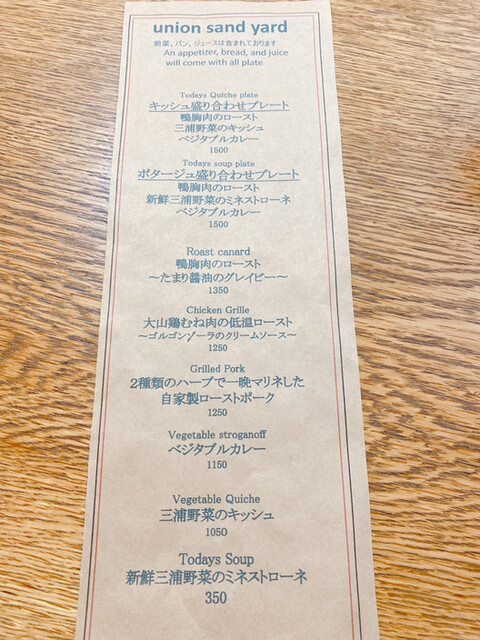 union sand yard
前菜、パン、ジュースは含まれております
An appetizer, bread, and juice
will come with all plate
Todays Quiche plate
キッシュ盛り合わせプレート
鴨胸肉のロースト
三浦野菜のキッシュ
ベジタブルカレー
1500
Todays soup plate
ポタージュ盛り合わせプレート
鴨胸肉のロースト
新鮮三浦野菜のミネストローネ
ベジタブルカレー
1500
Roast canard
鴨胸肉のロースト
～たまり醤油のグレイビー～
1350
Chicken Grille
大山鶏むね肉の低温ロースト
～ゴルゴンゾーラのクリームソース～
1250
Grilled Pork
2種類のハーブで一晩マリネした
自家製ローストポーク
1250
Vegetable stroganoff
ベジタブルカレー
1150
Vegetable Quiche
三浦野菜のキッシュ
1050
Todays Soup
新鮮三浦野菜のミネストローネ
350